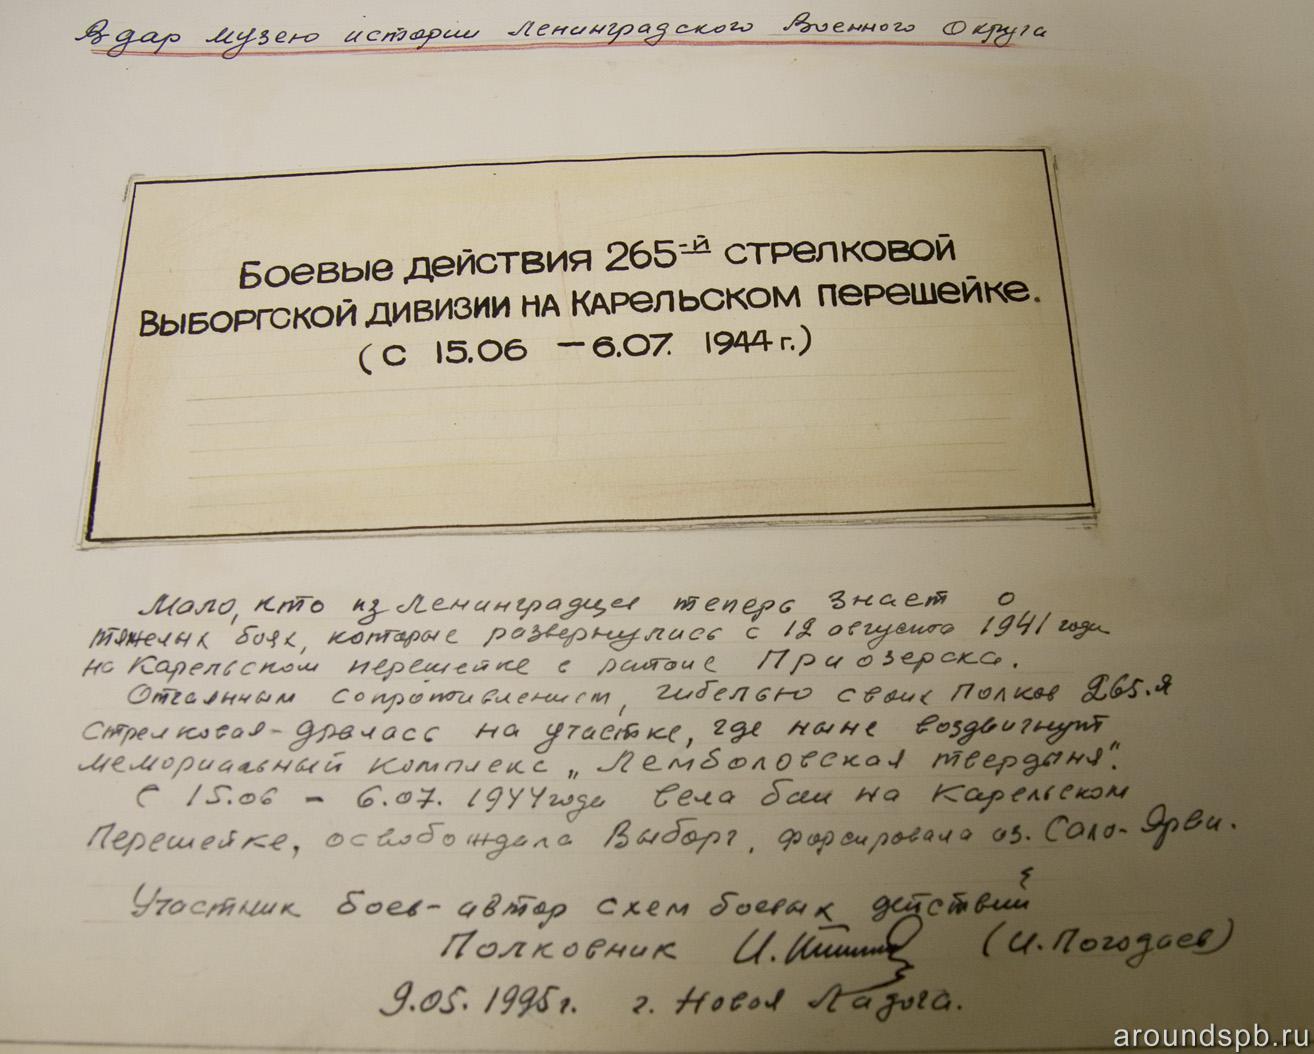 В дар музею истории Ленинградского Военного Округа
Боевые действия 265-й стрелковой
Выборгской дивизии на Карельском перешейке.
(с 15.06 – 6.07. 1944 г.)
Мало, кто из Ленинградцев теперь знает о
тяжелых боях, которые развернулись с 12 августа 1941 года
на Карельском перешейке в районе Приозерска.
Отчаянным сопротивлением, гибелью своих полков 265-я
стрелковая - дралась на участке, где ныне воздвигнут
мемориальный комплекс „Лемболовская твердыня".
С 15.06 – 6.07. 1944 года вела бои на Карельском
Перешейке, освобождала Выборг, форсировала оз. Сало-Ярви.
Участник боев - автор схем боевых действий
Полковник (И. Погодаев)
9.05. 1995 г. г. Новая Ладога.
aroundspb.ru